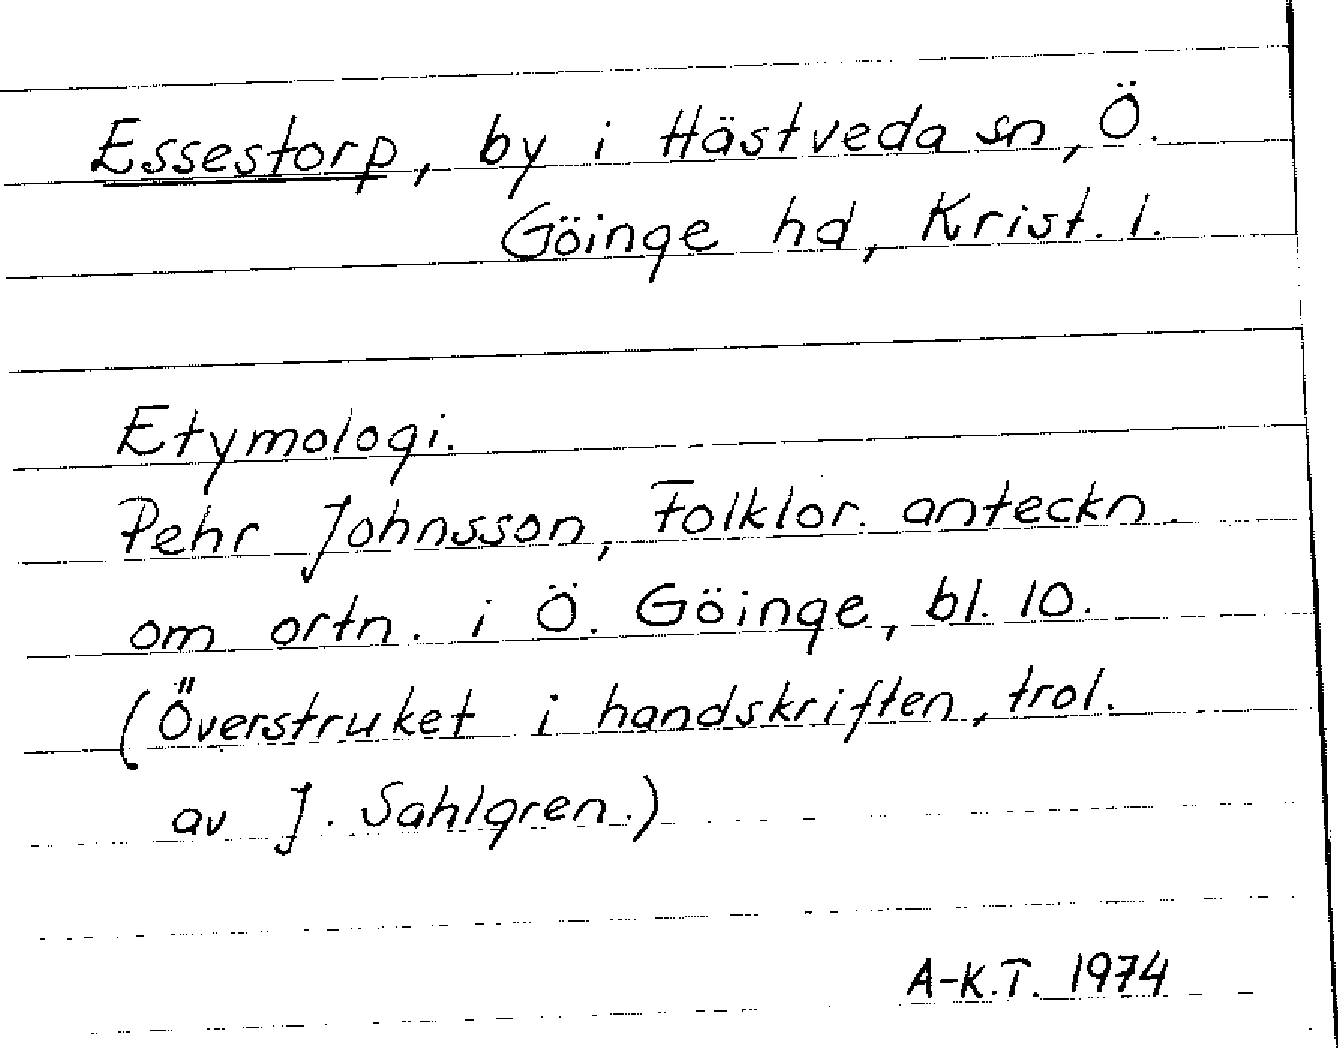 Essestorp, by i Hästveda sn, Ö.
Göinge hd, Krist. l.
Etymologi.
Pehr Johnsson, Folklor. anteckn.
om ortn. i Ö. Göinge, bl. 10.
(Överstruket i handskriften, trol.
av J. Sahlgren.)
A-K.T. 1974